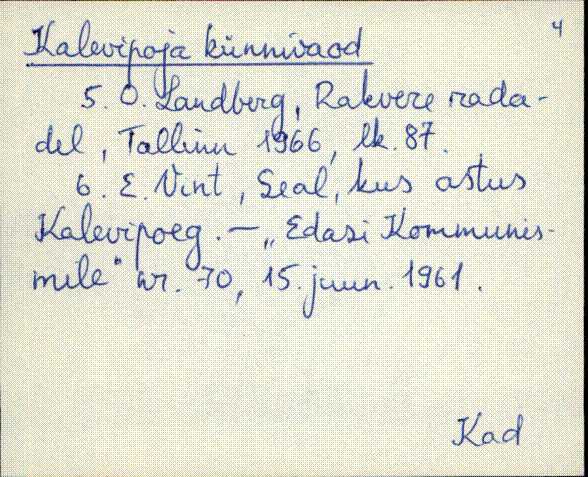 4
Kalevipoja künnivaod
5. O. Landberg, Rakvere rada-
del, Tallinn 1966, lk. 87.
6. E. Vint, Seal, kus astus
Kalevipoeg. — „Edasi Kommunis-
mile" nr. 70, 15. juun. 1961.
Kad